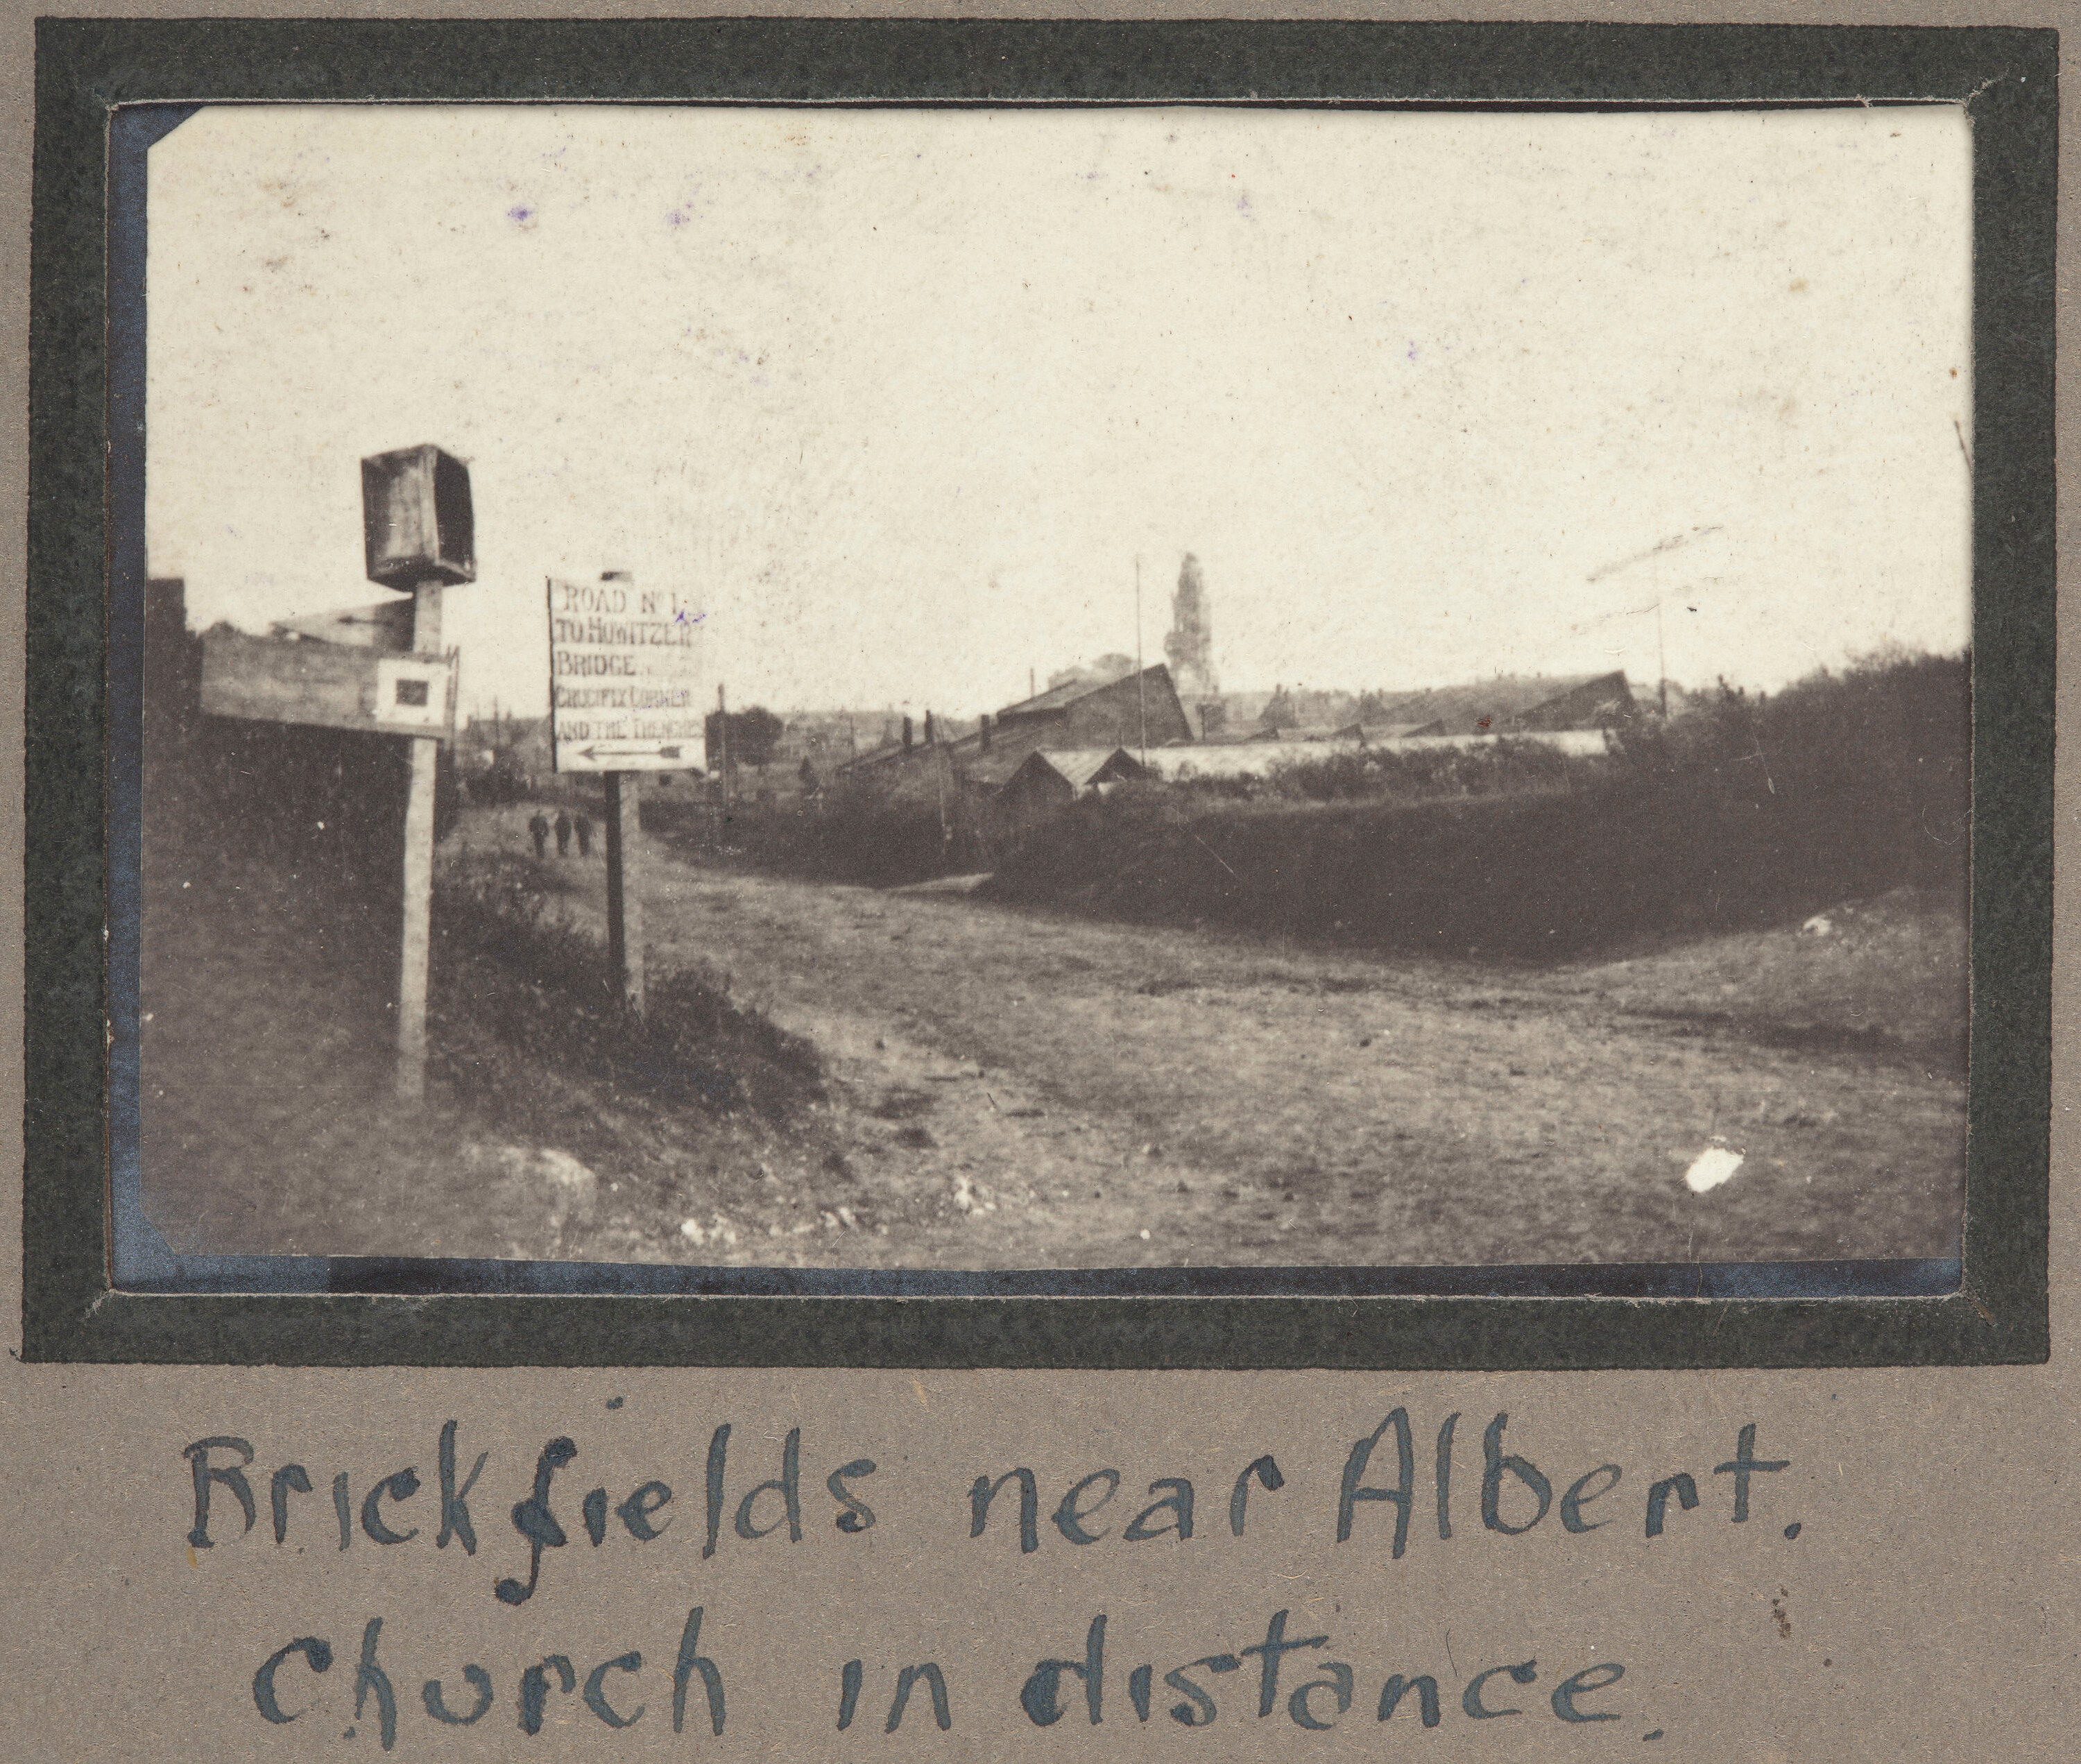 ROAD No 1.
TO HOWITZER
BRIDGE.
CRUCIFIX CORNER
AND THE TRENCHES
Brickfields near Albert.
Church in distance.